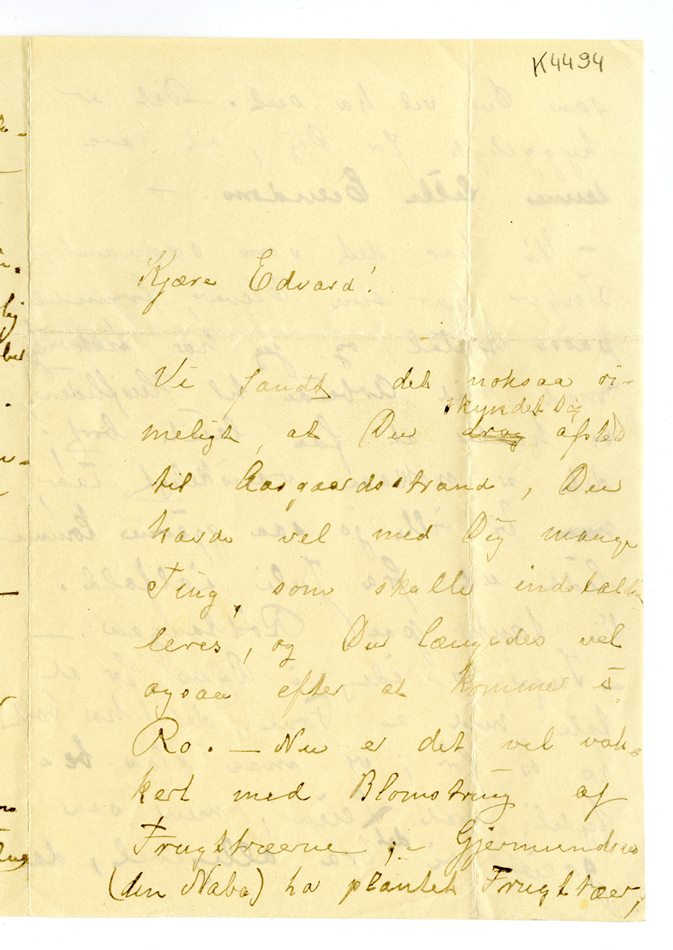 K4494
Kjære Edvard!
Vi fandt det noksaa ri-
meligt, at Du skyndet Dig afsted
til Aasgaardsstrand, Du
havde vel med Dig mange
Ting, som skulle indstal-
leres, og Du længedes vel
ogsaa efter at komme i
Ro. — Nu er det vel vak-
kert med Blomstring af
Frugttræerne; Gjermundsen
(den Nabo) ha plantet Frugttræer,